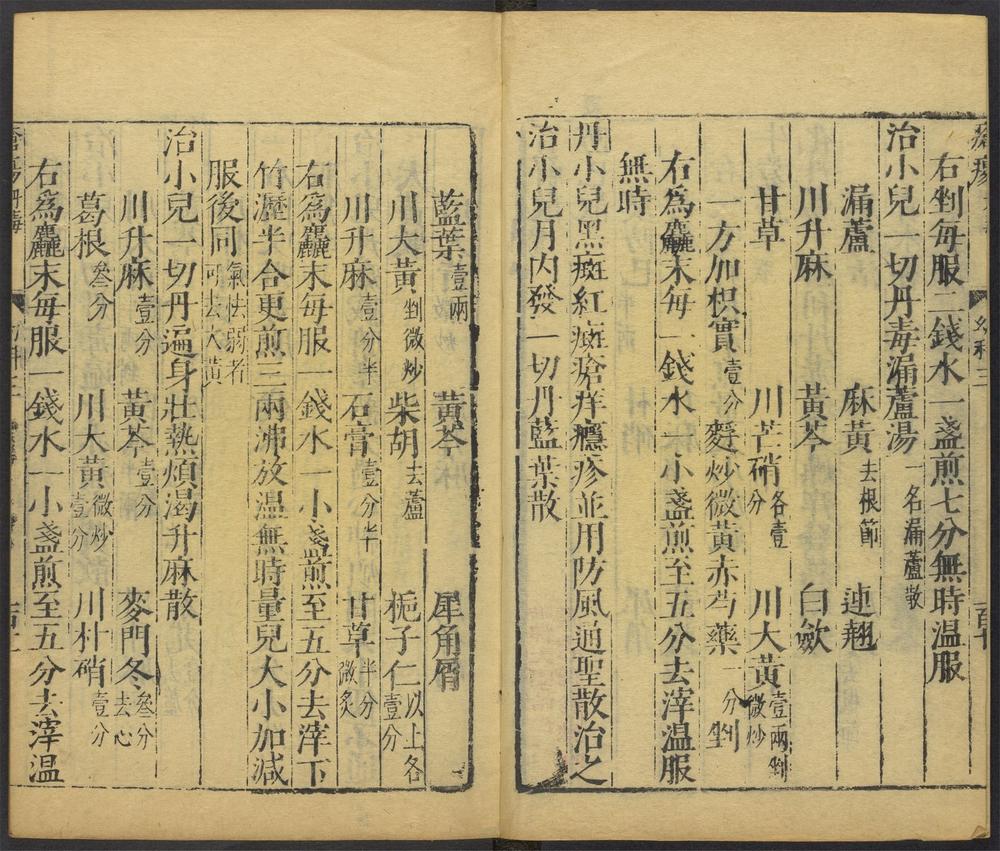 右剉每服二錢水一盞煎七分無時温服
治小兒一切丹毒漏蘆湯一名漏蘆散
漏蘆 麻黃去根節 連翹
川升麻 黃芩 白歛
甘草 川芒硝各壹分 川大黃壹兩剉微炒
一方加枳實壹分麪炒微黃赤芍藥一分剉
右爲麤末每一錢水一小盞煎至五分去滓温服
無時
丹小兒黑斑紅斑瘡痒癮疹並用防風通聖散治之
治小兒月内發一切丹藍葉散
藍葉壹兩 黃芩 犀角屑
川大黃剉微炒 柴胡去蘆 梔子仁以上各壹分
川升麻壹分半 石膏壹分半 甘草半分微炙
右爲麤末每服一錢水一小盞煎至五分去滓下
竹瀝半合更煎三兩沸放温無時量兒大小加減
服後同氣怯弱者可去大黃
治小兒一切丹遍身壯熱煩渴升麻散
川升麻壹分 黃芩壹分 麥門冬叁分去心
葛根叁分 川大黃微炒壹分 川朴硝壹分
右爲麤末每服一錢水一小盞煎至五分去滓温